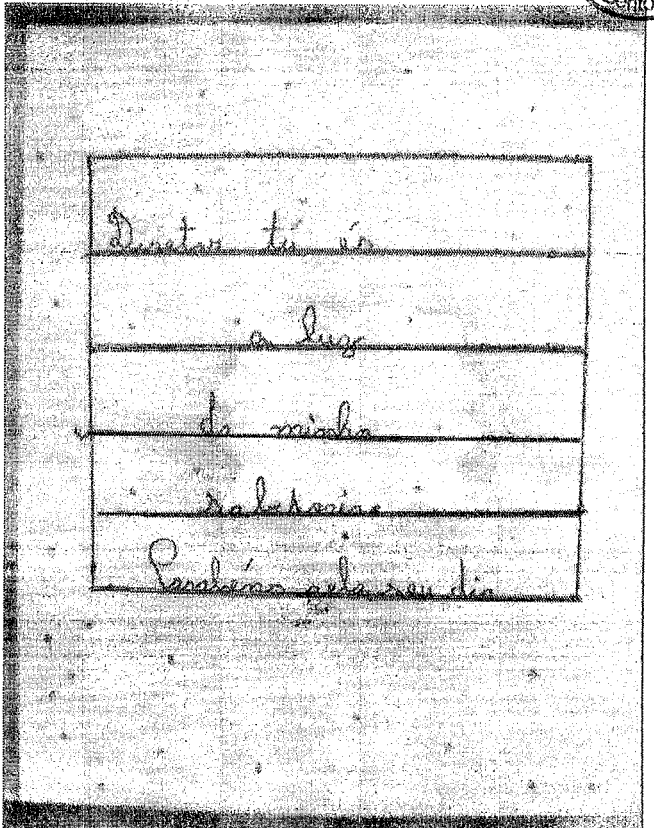 Diretor tú és
a luz
da minha
sabedoria
Parabéns pelo seu dia